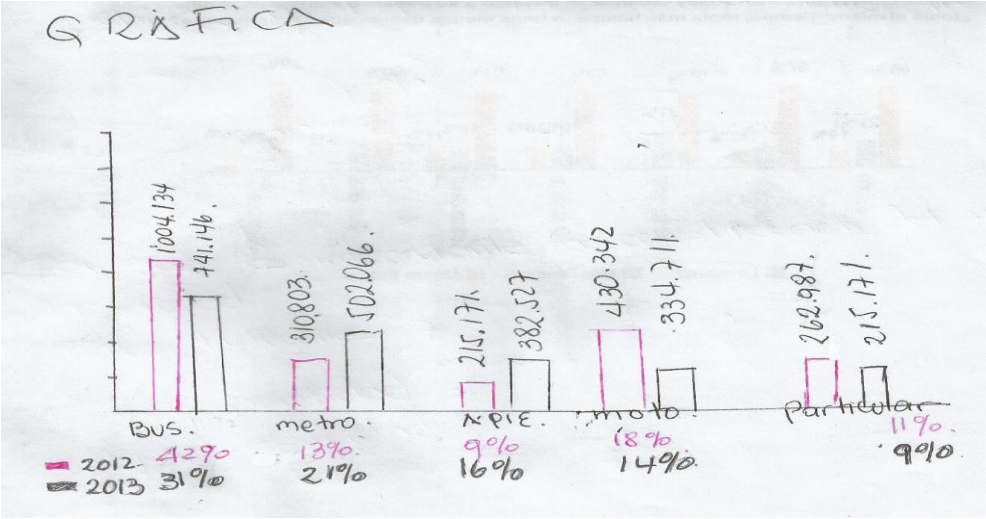 GRÁFICA
1'004.134
741.146.
310.803.
502.066.
215.171.
382.527
430.342
334.711.
262.987.
215.171.
BUS. metro. A PIE. moto. particular
42% 13% 9% 18% 11%.
31% 21% 16% 14%. 9%.
2012.
2013